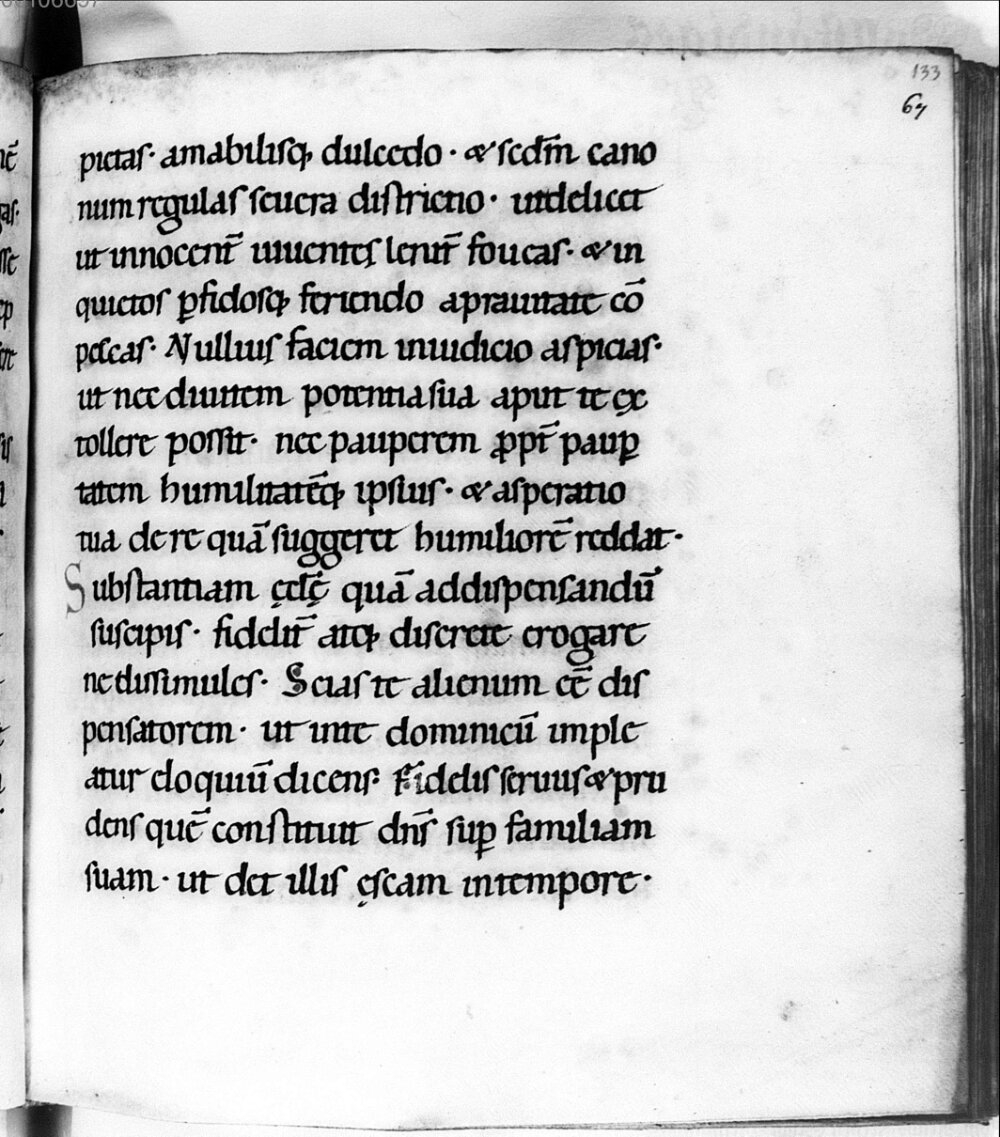 133
67
pietas· amabilisq; dulcedo· & scdm̄ cano
num regulas seuera districtio· uidelicet
ut innocent̄ uiuentes lenit̄ foueas· & in
quietos ꝑfidosq; feriendo aprauitate cō
pescas· Nullius faciem iniudicio aspicias·
ut nec diuitem potentia sua aput te ex
tollere possit· nec pauperem ꝓpt̄ pauꝑ
tatem humilitatēq; ipsius· & asperatio
tua de re quā suggeret humiliorē reddat·
Substantiam ęcłę quā addispensandū
suscipis· fidelit̄ atq; discrete erogare
ne dissimules· Scias te alienum eē dis
pensatorem· ut inte dominicū imple
atur eloquiū dicens· Fidelis seruus & pru
dens quē constituit dn̄s suꝑ familiam
suam· ut det illis ęscam intempore·